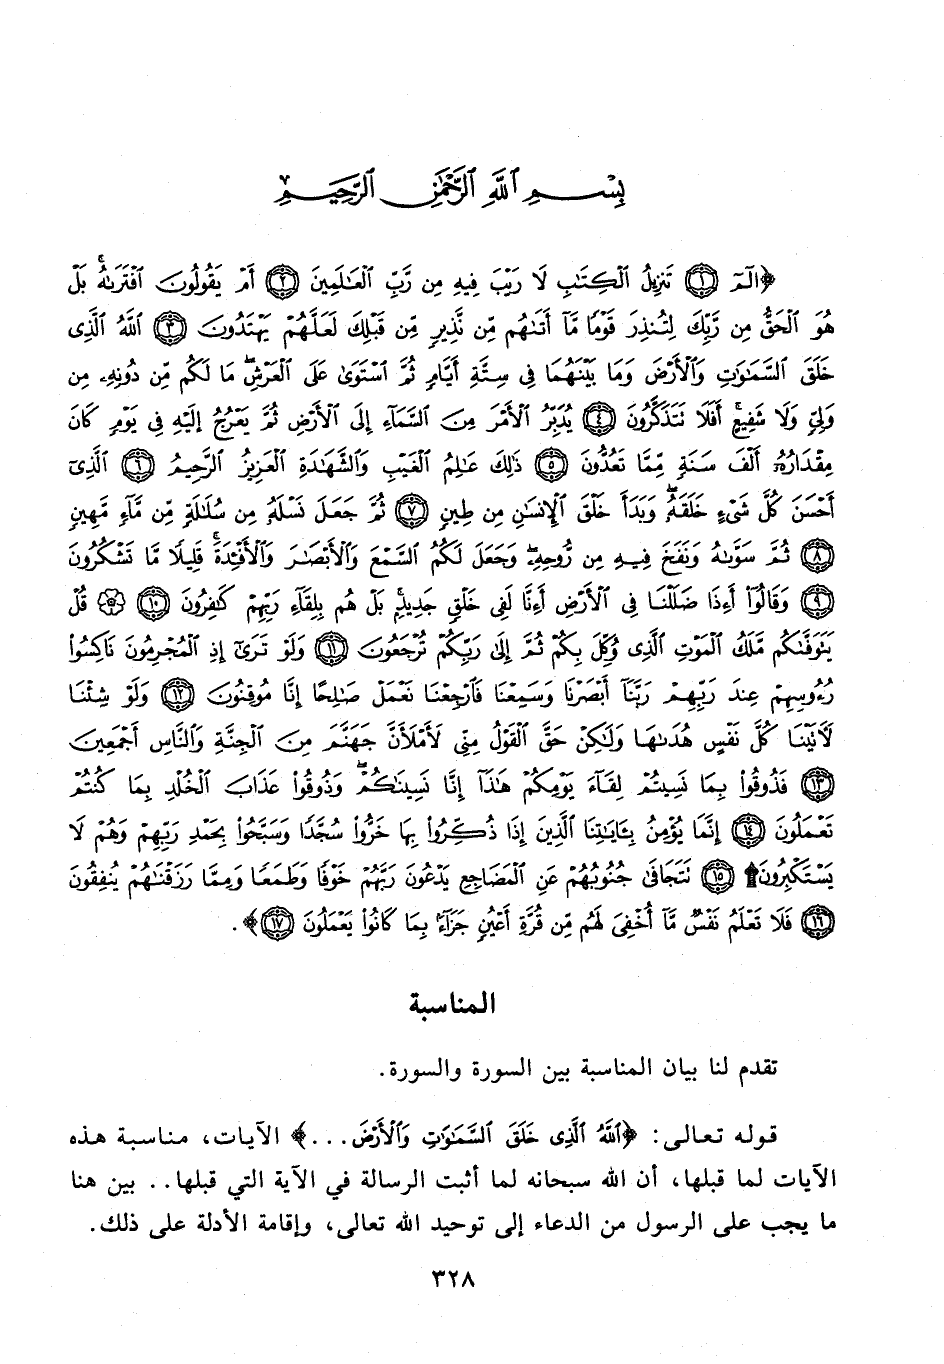 بِسْمِ ٱللَّهِ ٱلرَّحْمَٰنِ ٱلرَّحِيمِ
﴿الٓمٓ ١ تَنزِيلُ ٱلْكِتَٰبِ لَا رَيْبَ فِيهِ مِن رَّبِّ ٱلْعَٰلَمِينَ ٢ أَمْ يَقُولُونَ ٱفْتَرَىٰهُ ۚ بَلْ
هُوَ ٱلْحَقُّ مِن رَّبِّكَ لِتُنذِرَ قَوْمًا مَّآ أَتَىٰهُم مِّن نَّذِيرٍ مِّن قَبْلِكَ لَعَلَّهُمْ يَهْتَدُونَ ٣ ٱللَّهُ ٱلَّذِى
خَلَقَ ٱلسَّمَٰوَٰتِ وَٱلْأَرْضَ وَمَا بَيْنَهُمَا فِى سِتَّةِ أَيَّامٍ ثُمَّ ٱسْتَوَىٰ عَلَى ٱلْعَرْشِ ۖ مَا لَكُم مِّن دُونِهِۦ مِن
وَلِىٍّ وَلَا شَفِيعٍ ۚ أَفَلَا تَتَذَكَّرُونَ ٤ يُدَبِّرُ ٱلْأَمْرَ مِنَ ٱلسَّمَآءِ إِلَى ٱلْأَرْضِ ثُمَّ يَعْرُجُ إِلَيْهِ فِى يَوْمٍ كَانَ
مِقْدَارُهُۥٓ أَلْفَ سَنَةٍ مِّمَّا تَعُدُّونَ ٥ ذَٰلِكَ عَٰلِمُ ٱلْغَيْبِ وَٱلشَّهَٰدَةِ ٱلْعَزِيزُ ٱلرَّحِيمُ ٦ ٱلَّذِىٓ
أَحْسَنَ كُلَّ شَىْءٍ خَلَقَهُۥ ۖ وَبَدَأَ خَلْقَ ٱلْإِنسَٰنِ مِن طِينٍ ٧ ثُمَّ جَعَلَ نَسْلَهُۥ مِن سُلَٰلَةٍ مِّن مَّآءٍ مَّهِينٍ
٨ ثُمَّ سَوَّىٰهُ وَنَفَخَ فِيهِ مِن رُّوحِهِۦ ۖ وَجَعَلَ لَكُمُ ٱلسَّمْعَ وَٱلْأَبْصَٰرَ وَٱلْأَفْـِٔدَةَ ۚ قَلِيلًا مَّا تَشْكُرُونَ
٩ وَقَالُوٓا۟ أَءِذَا ضَلَلْنَا فِى ٱلْأَرْضِ أَءِنَّا لَفِى خَلْقٍ جَدِيدٍۭ ۚ بَلْ هُم بِلِقَآءِ رَبِّهِمْ كَٰفِرُونَ ١٠ ۞ قُلْ
يَتَوَفَّىٰكُم مَّلَكُ ٱلْمَوْتِ ٱلَّذِى وُكِّلَ بِكُمْ ثُمَّ إِلَىٰ رَبِّكُمْ تُرْجَعُونَ ١١ وَلَوْ تَرَىٰٓ إِذِ ٱلْمُجْرِمُونَ نَاكِسُوا۟
رُءُوسِهِمْ عِندَ رَبِّهِمْ رَبَّنَآ أَبْصَرْنَا وَسَمِعْنَا فَٱرْجِعْنَا نَعْمَلْ صَٰلِحًا إِنَّا مُوقِنُونَ ١٢ وَلَوْ شِئْنَا
لَـَٔاتَيْنَا كُلَّ نَفْسٍ هُدَىٰهَا وَلَٰكِنْ حَقَّ ٱلْقَوْلُ مِنِّى لَأَمْلَأَنَّ جَهَنَّمَ مِنَ ٱلْجِنَّةِ وَٱلنَّاسِ أَجْمَعِينَ
١٣ فَذُوقُوا۟ بِمَا نَسِيتُمْ لِقَآءَ يَوْمِكُمْ هَٰذَآ إِنَّا نَسِينَٰكُمْ ۖ وَذُوقُوا۟ عَذَابَ ٱلْخُلْدِ بِمَا كُنتُمْ
تَعْمَلُونَ ١٤ إِنَّمَا يُؤْمِنُ بِـَٔايَٰتِنَا ٱلَّذِينَ إِذَا ذُكِّرُوا۟ بِهَا خَرُّوا۟ سُجَّدًا وَسَبَّحُوا۟ بِحَمْدِ رَبِّهِمْ وَهُمْ لَا
يَسْتَكْبِرُونَ ۩ ١٥ تَتَجَافَىٰ جُنُوبُهُمْ عَنِ ٱلْمَضَاجِعِ يَدْعُونَ رَبَّهُمْ خَوْفًا وَطَمَعًا وَمِمَّا رَزَقْنَٰهُمْ يُنفِقُونَ
١٦ فَلَا تَعْلَمُ نَفْسٌ مَّآ أُخْفِىَ لَهُم مِّن قُرَّةِ أَعْيُنٍ جَزَآءًۢ بِمَا كَانُوا۟ يَعْمَلُونَ ١٧﴾.
المناسبة
تقدم لنا بيان المناسبة بين السورة والسورة.
قوله تعالى: ﴿ٱللَّهُ ٱلَّذِى خَلَقَ ٱلسَّمَٰوَٰتِ وَٱلْأَرْضَ...﴾ الآيات، مناسبة هذه
الآيات لما قبلها، أن الله سبحانه لما أثبت الرسالة في الآية التي قبلها.. بين هنا
ما يجب على الرسول من الدعاء إلى توحيد الله تعالى، وإقامة الأدلة على ذلك.
٣٢٨